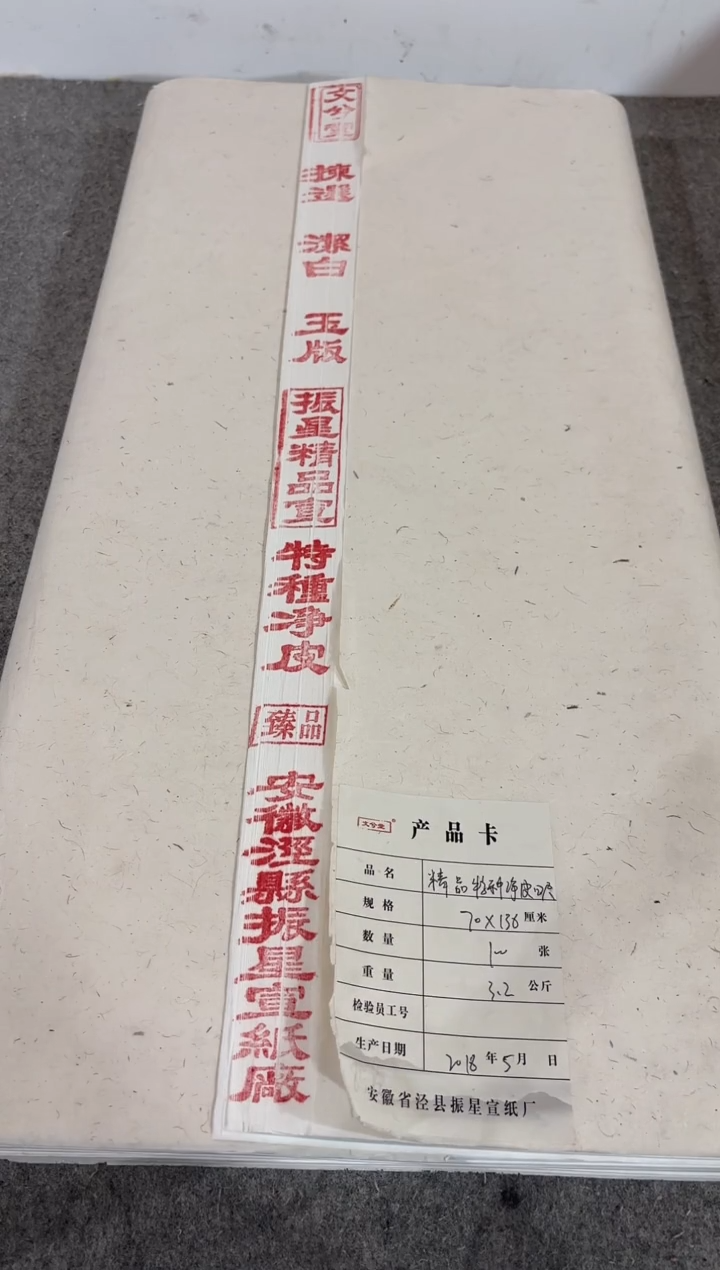 文兮堂
揀選
潔白
玉版
振星精品宣
特種净皮
臻品
安徽涇縣振星宣紙廠
文兮堂
产品卡
品名 精品特种净皮四尺
规格 70×138 厘米
数量 100 张
重量 3.2 公斤
检验员工号
生产日期 2018 年 5 月 日
安徽省泾县振星宣纸厂